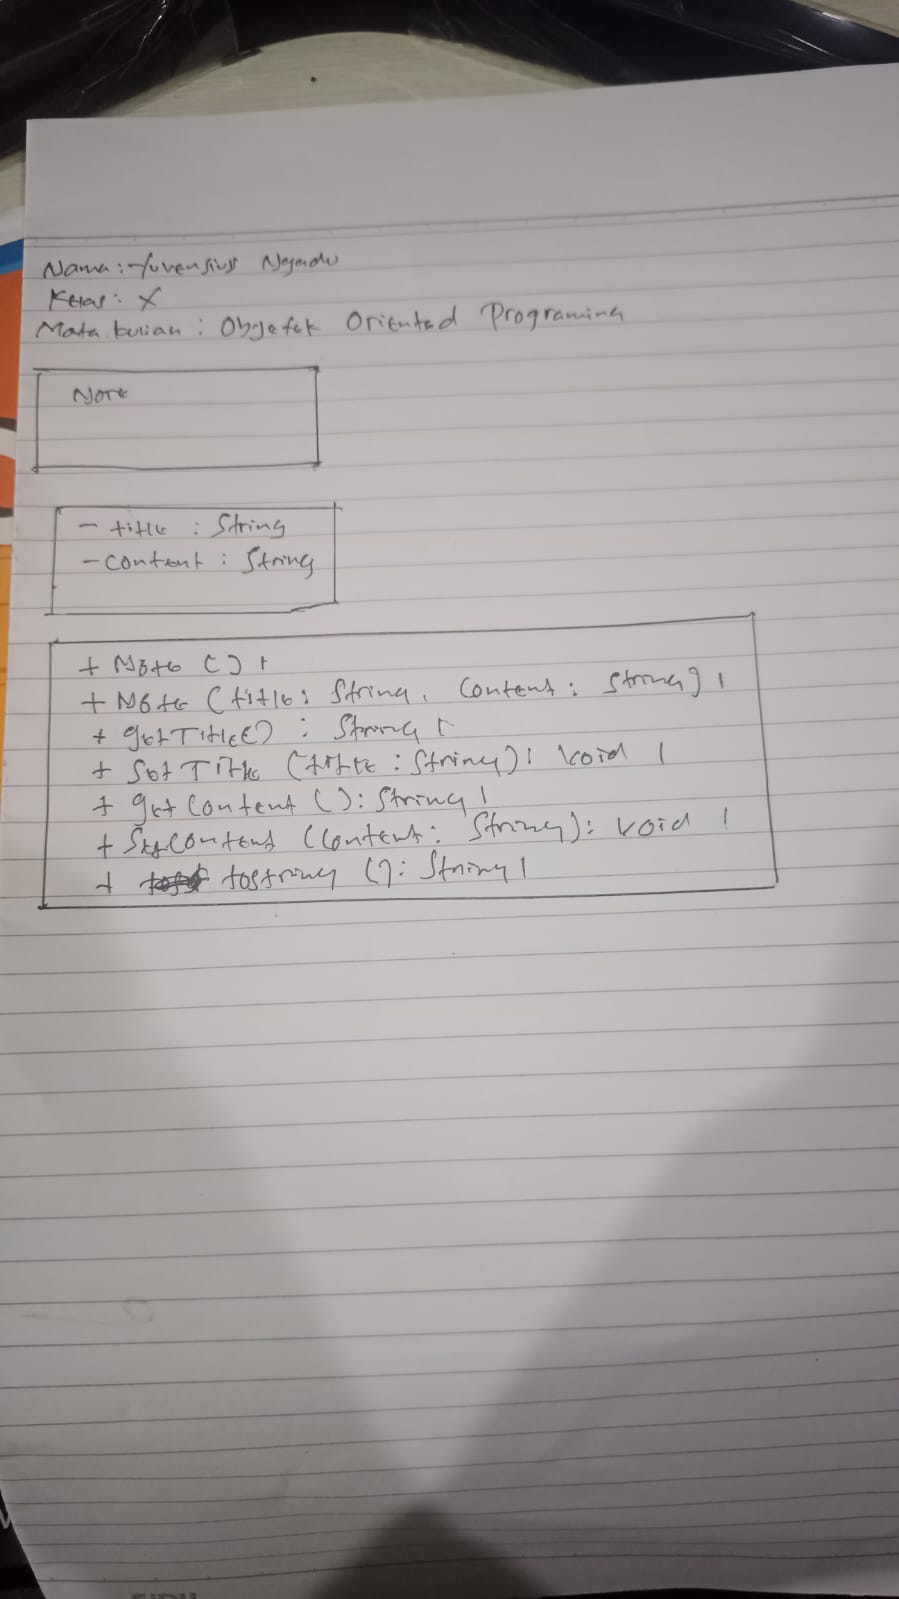 Nama : Yuvensius Ngandu
Kelas : X
Mata kulian : Objefek Oriented Programing
Note
- title : String
- content : String
+ Note () |
+ Note (title : String, Content : String) |
+ getTitle() : String |
+ Set Title (title : String) : void |
+ get Content () : String |
+ Set Content (Content : String) : void |
+ tostring () : String |